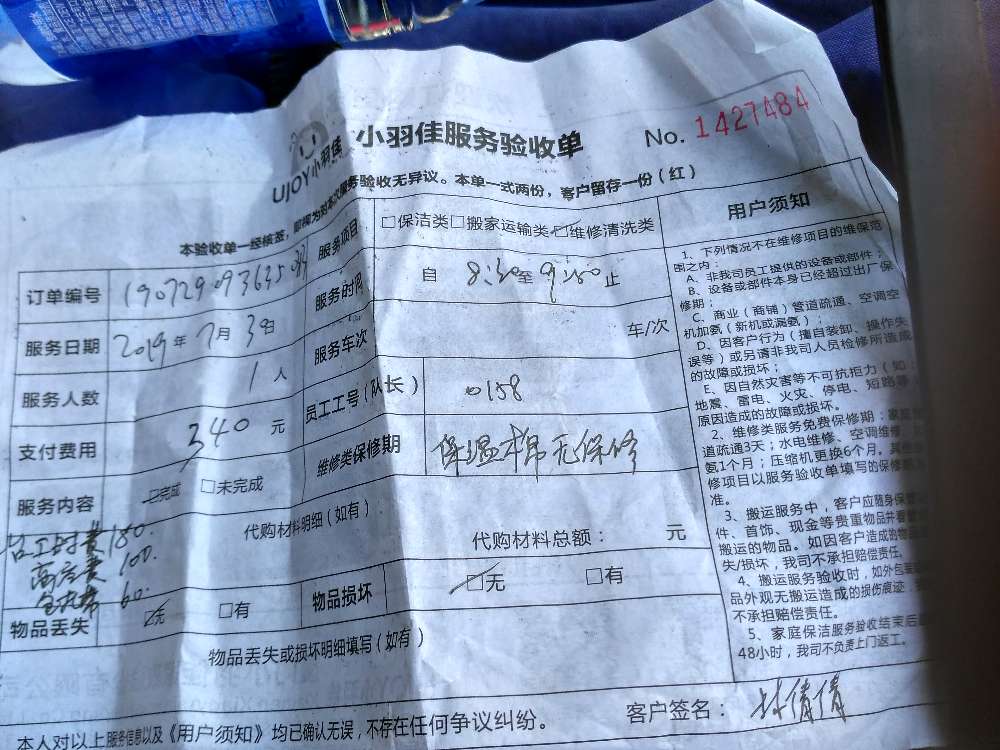 UJOY小羽佳 小羽佳服务验收单 No. 1427484
本验收单一经核签，即视为对本次服务验收无异议。本单一式两份，客户留存一份（红）
订单编号 服务项目 □保洁类□搬家运输类□维修清洗类
服务日期 2019年7月3日 服务时间 自 8:30至9:50止
服务人数 1人 服务车次 车/次
支付费用 340元 员工工号（队长） 0158
服务内容 □完成 □未完成 维修类保修期 保温棉无保修
代购材料明细（如有） 代购材料总额： 元
180
高层费 100
60
物品丢失 □无 □有 物品损坏 □无 □有
物品丢失或损坏明细填写（如有）
本人对以上服务信息以及《用户须知》均已确认无误，不存在任何争议纠纷。
客户签名： 林倩倩
用户须知
1、下列情况不在维修项目的维保范
围之内：
A、非我司员工提供的设备或部件；
B、设备或部件本身已经超过出厂保
修期；
C、商业（商铺）管道疏通、空调空
机加氨（新机或漏氨）；
D、因客户行为（擅自装卸、操作失
误等）或另请非我司人员检修所造成
的故障或损坏；
E、因自然灾害等不可抗拒力（如：
地震、雷电、火灾、停电、短路等
原因造成的故障或损坏。
2、维修类服务免费保修期：家庭管
道疏通3天；水电维修、空调维修、
氨1个月；压缩机更换6个月。其他
修项目以服务验收单填写的保修期
准。
3、搬运服务中，客户应随身保管
件、首饰、现金等贵重物品并看管
搬运的物品。如因客户造成的物品
失/损坏，我司不承担赔偿责任。
4、搬运服务验收时，如外包装
品外观无搬运造成的损伤痕迹，
不承担赔偿责任。
5、家庭保洁服务验收结束后
48小时，我司不负责上门返工。